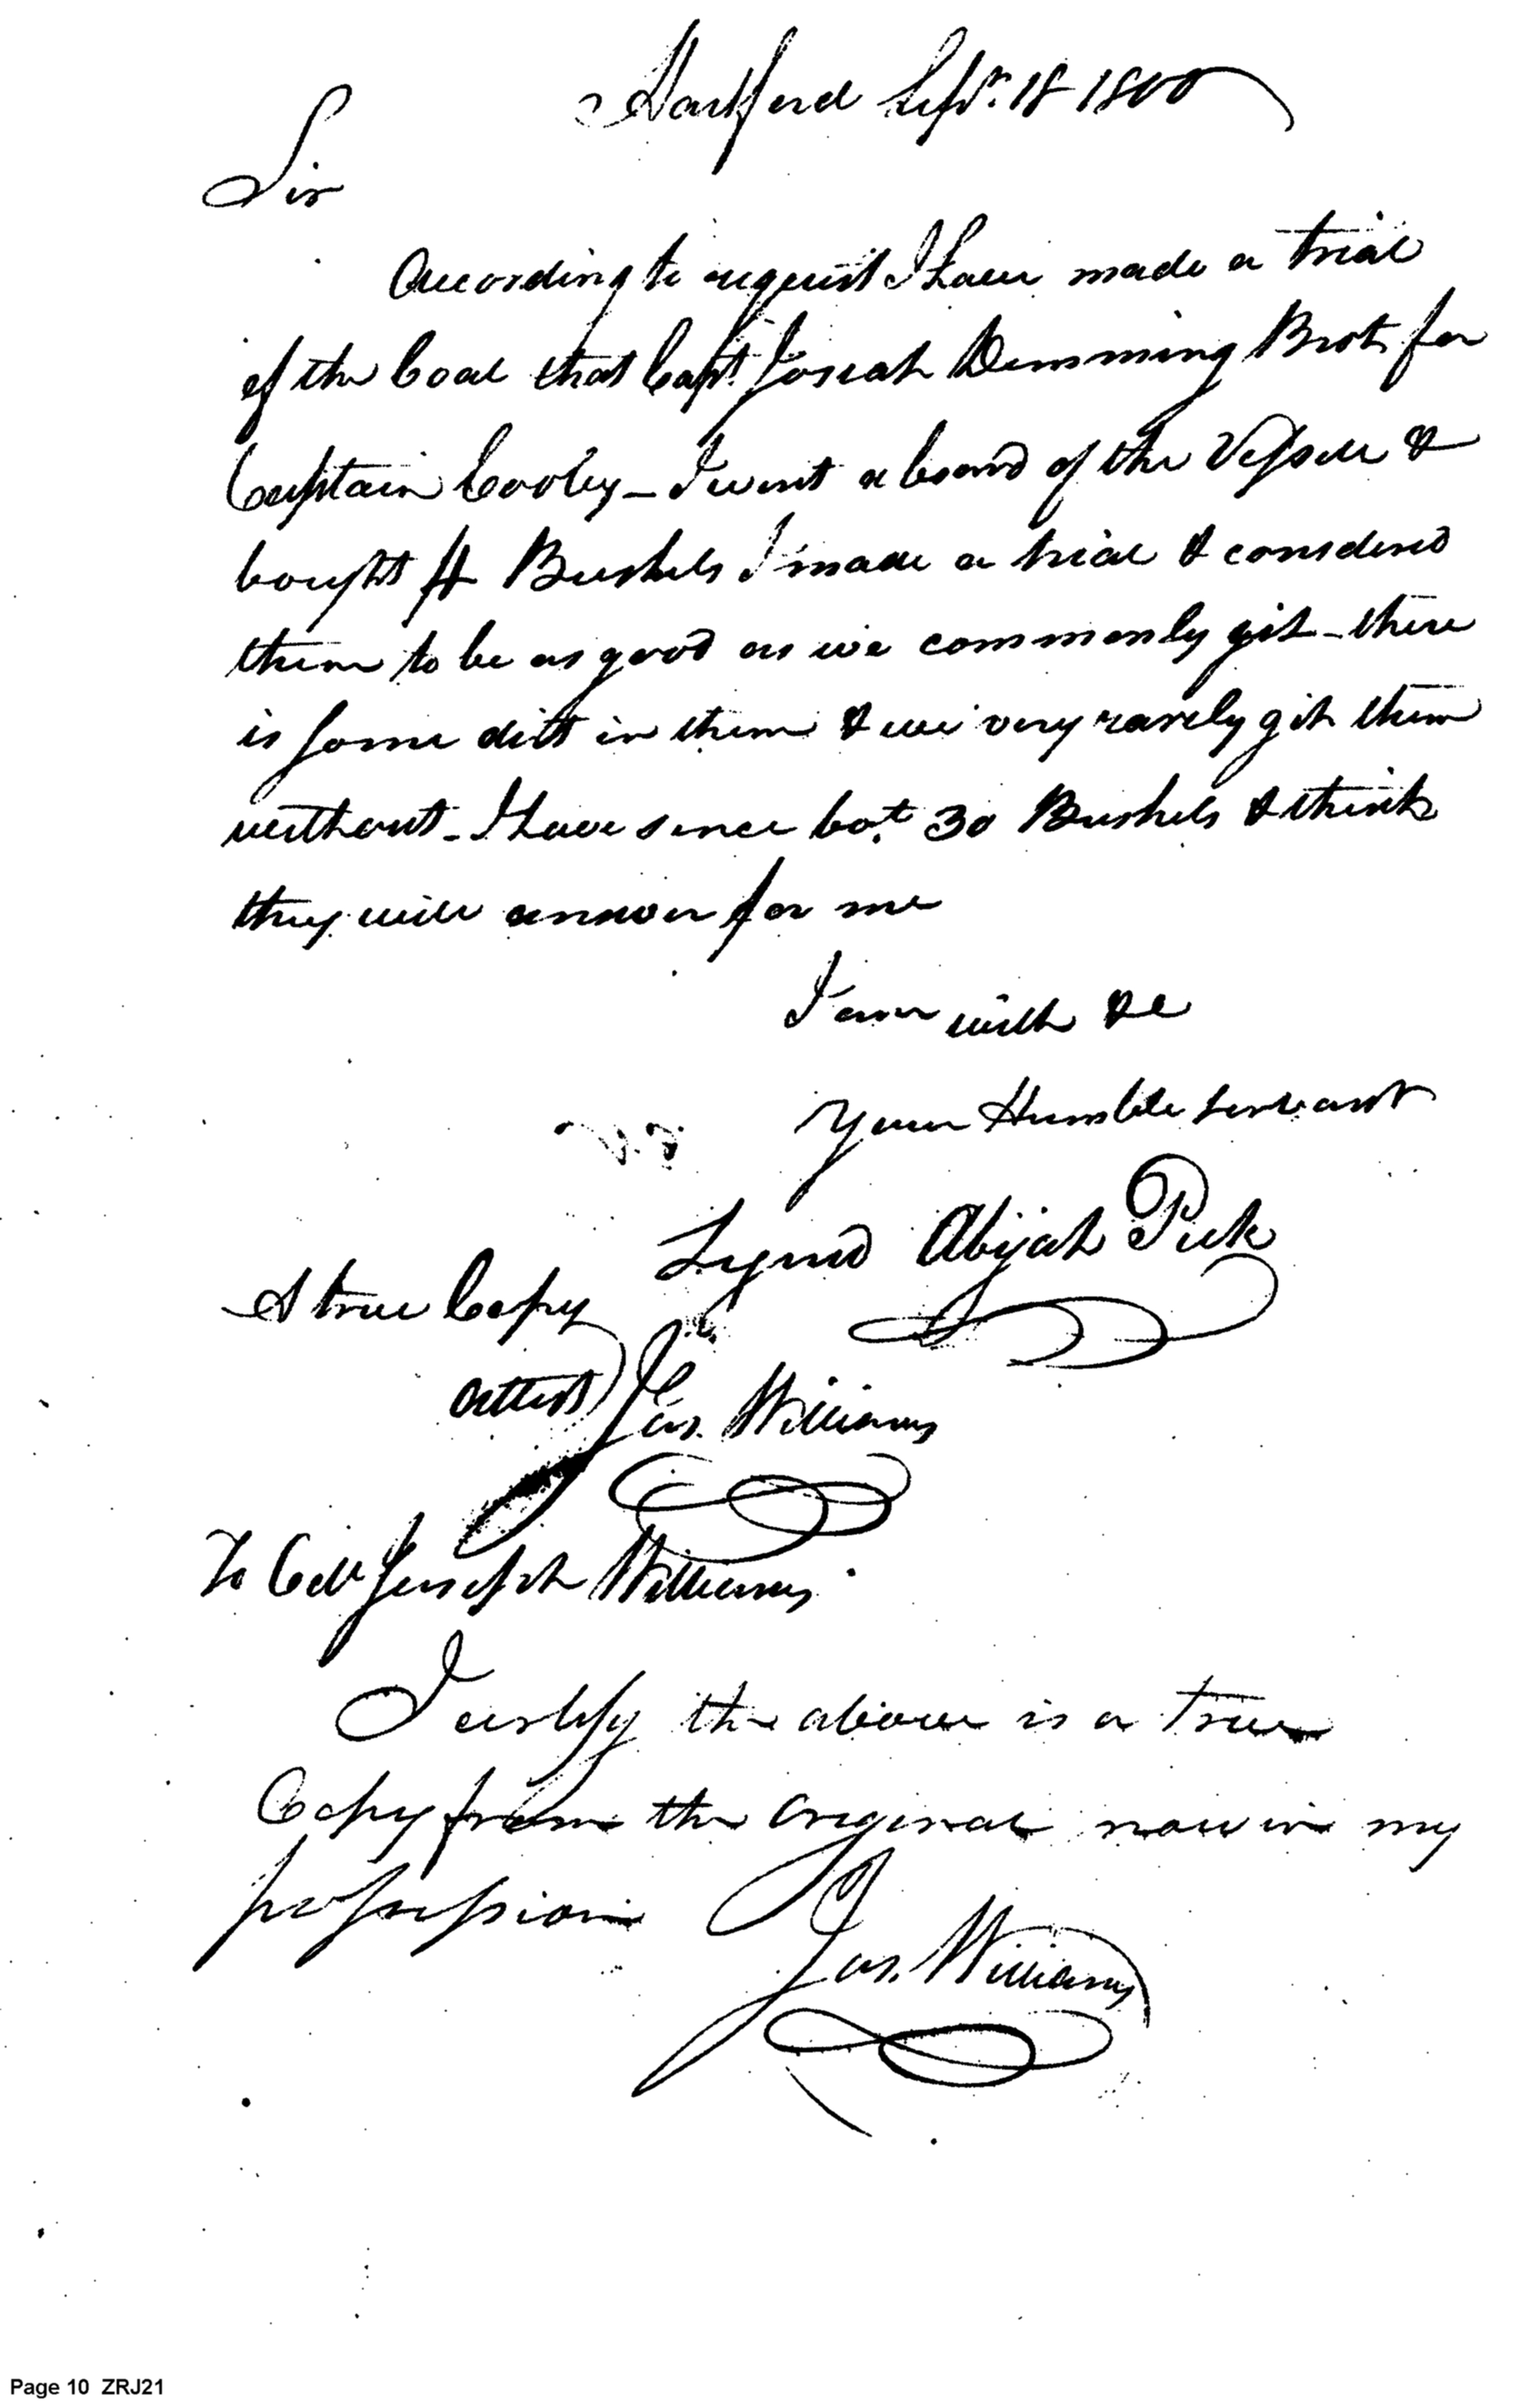 Hartford Sepr. 18 1800
Sir
According to request I have made a trial
of the Coal that Capt. Josiah Demming Brot for
Captain Cooley - I went a board of the Vessell &
bought 4 Bushels I made a trial & considerd
them to be as good as we commonly git - there
is some dirt in them & we very rarely git them
without - I have since bot. 30 Bushels & think
they will answer for me
I am with &c
Your Humble servant
Signd Abijah Peck
A true Copy
attest Jos. Williams
To Coll Joseph Williams
I certify the above is a true
Copy from the Original now in my
possession
Jos. Williams
Page 10 ZRJ21